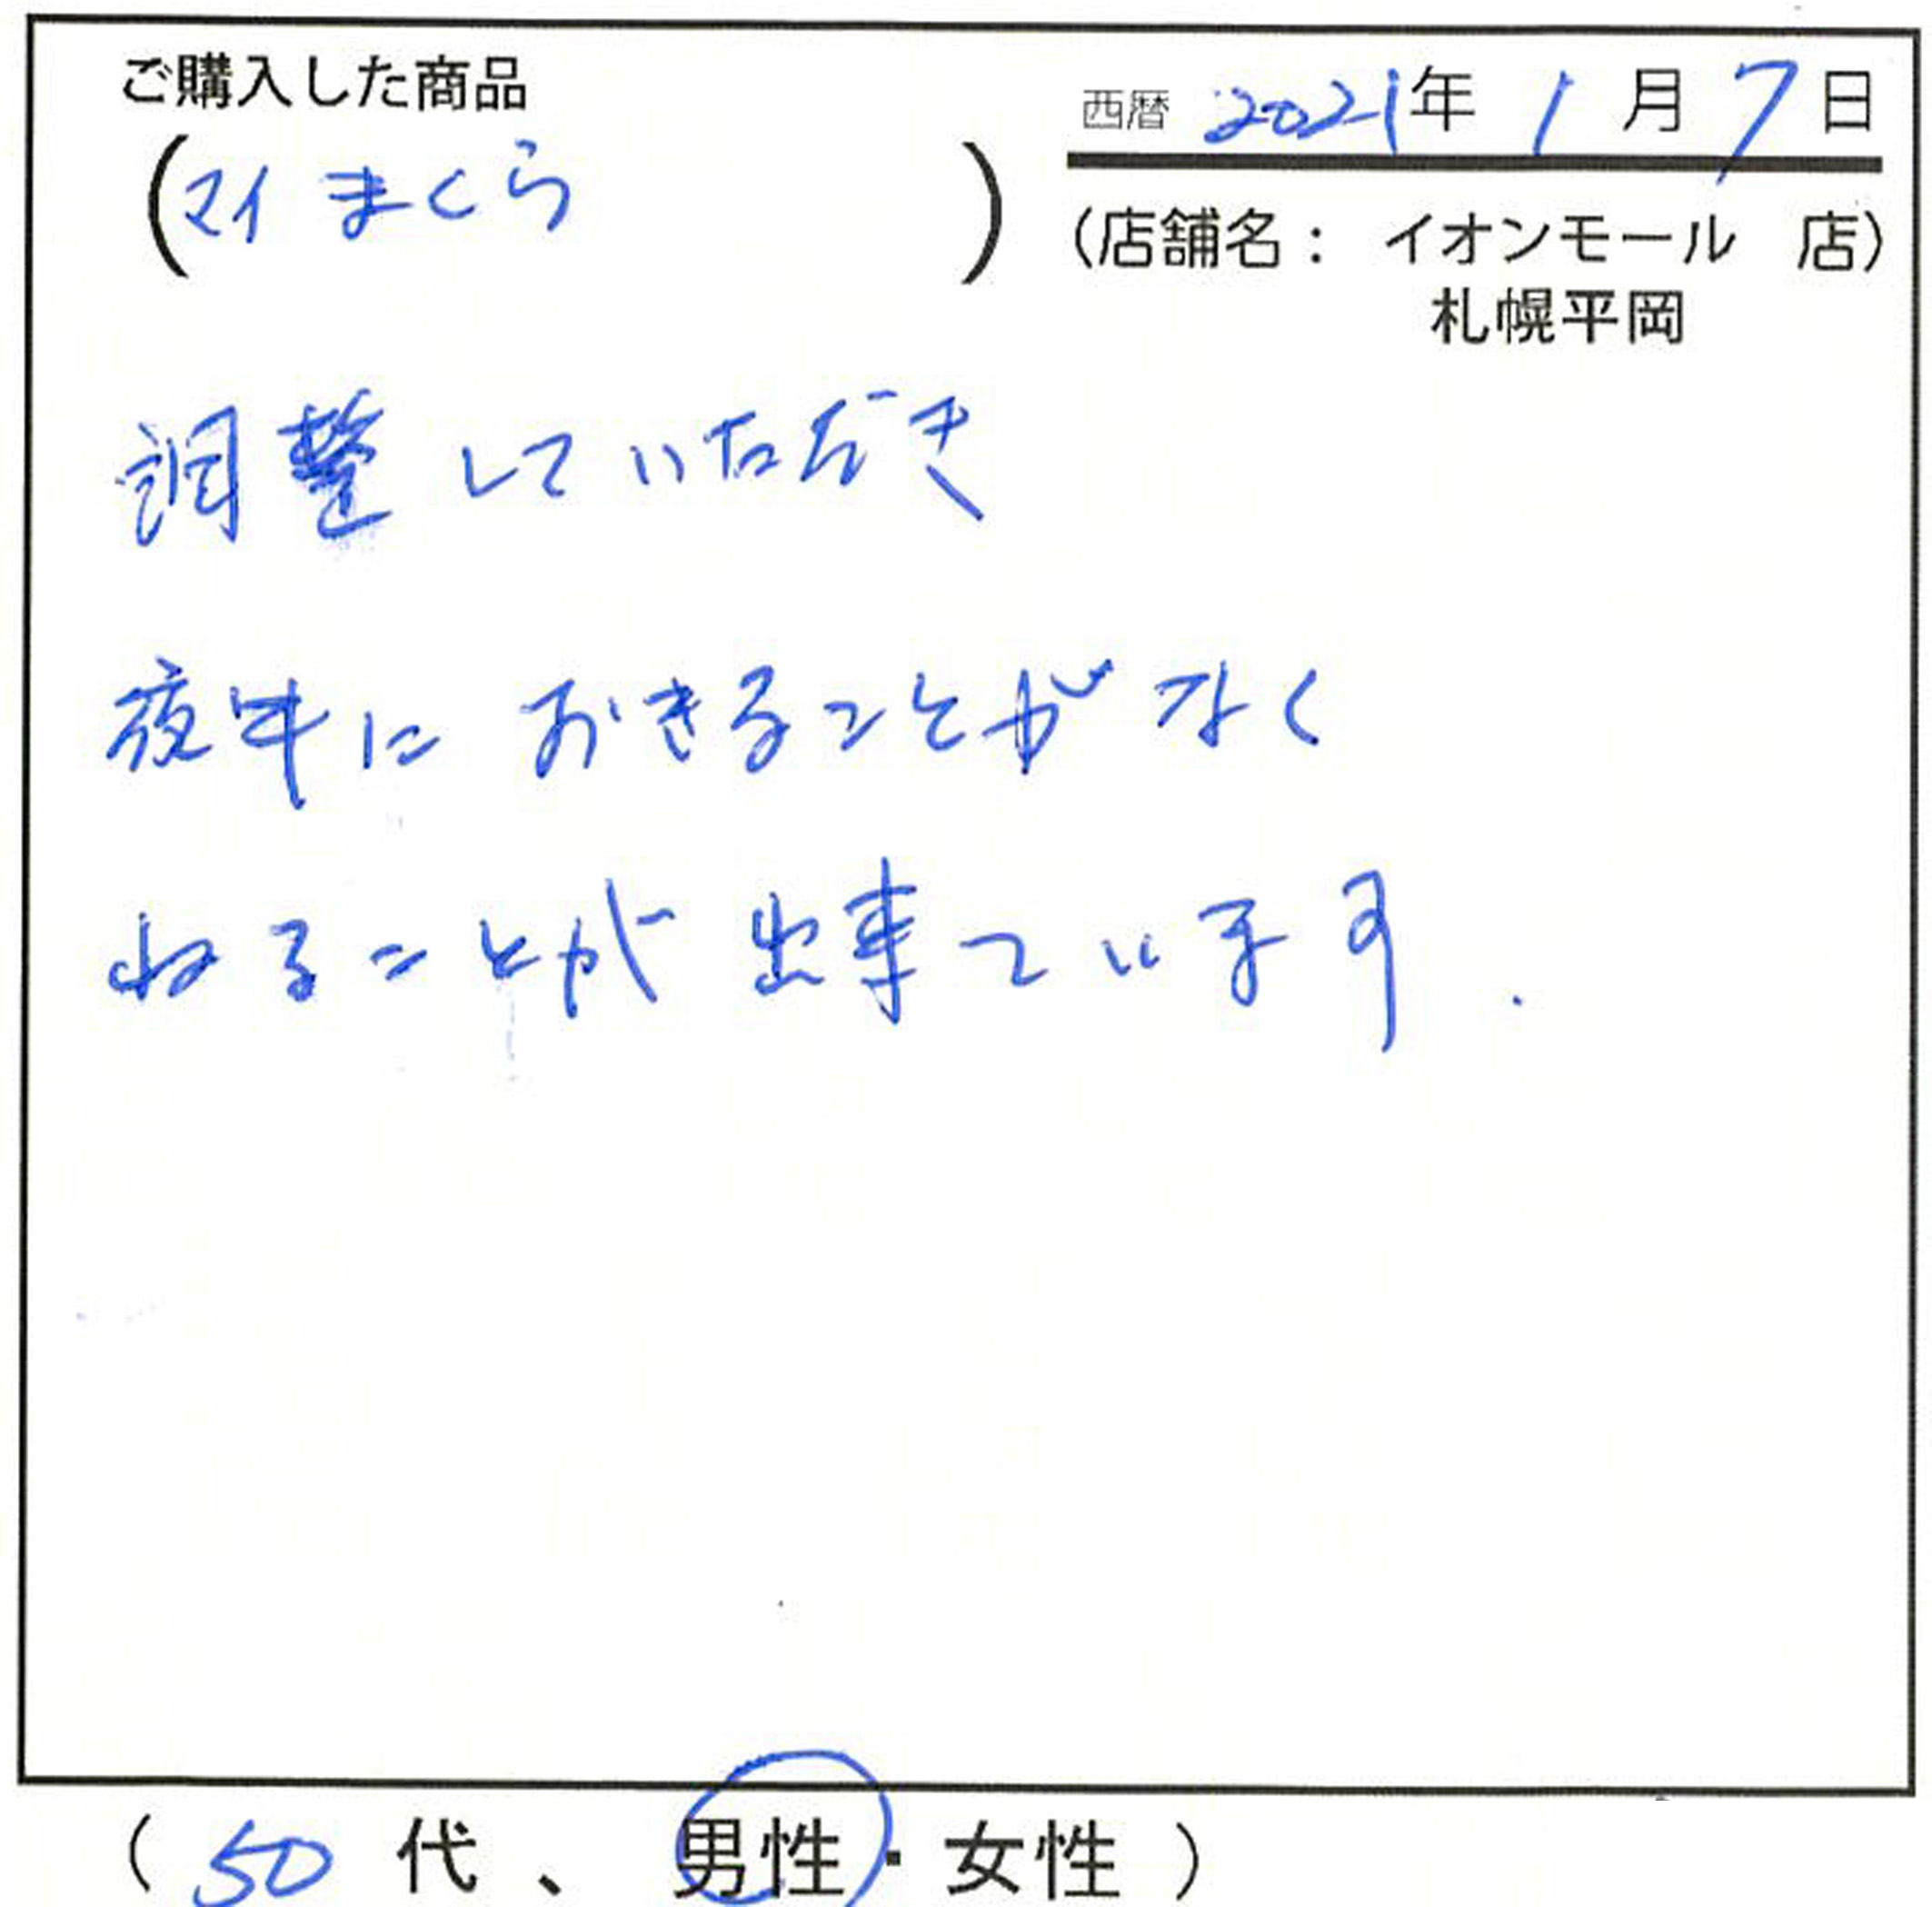 ご購入した商品
(マイまくら)
西暦 2021年 1月 7日
(店舗名: イオンモール 店)
札幌平岡
調整していただき
夜中におきることがなく
ねることが出来ています.
(50代、 男性・女性)